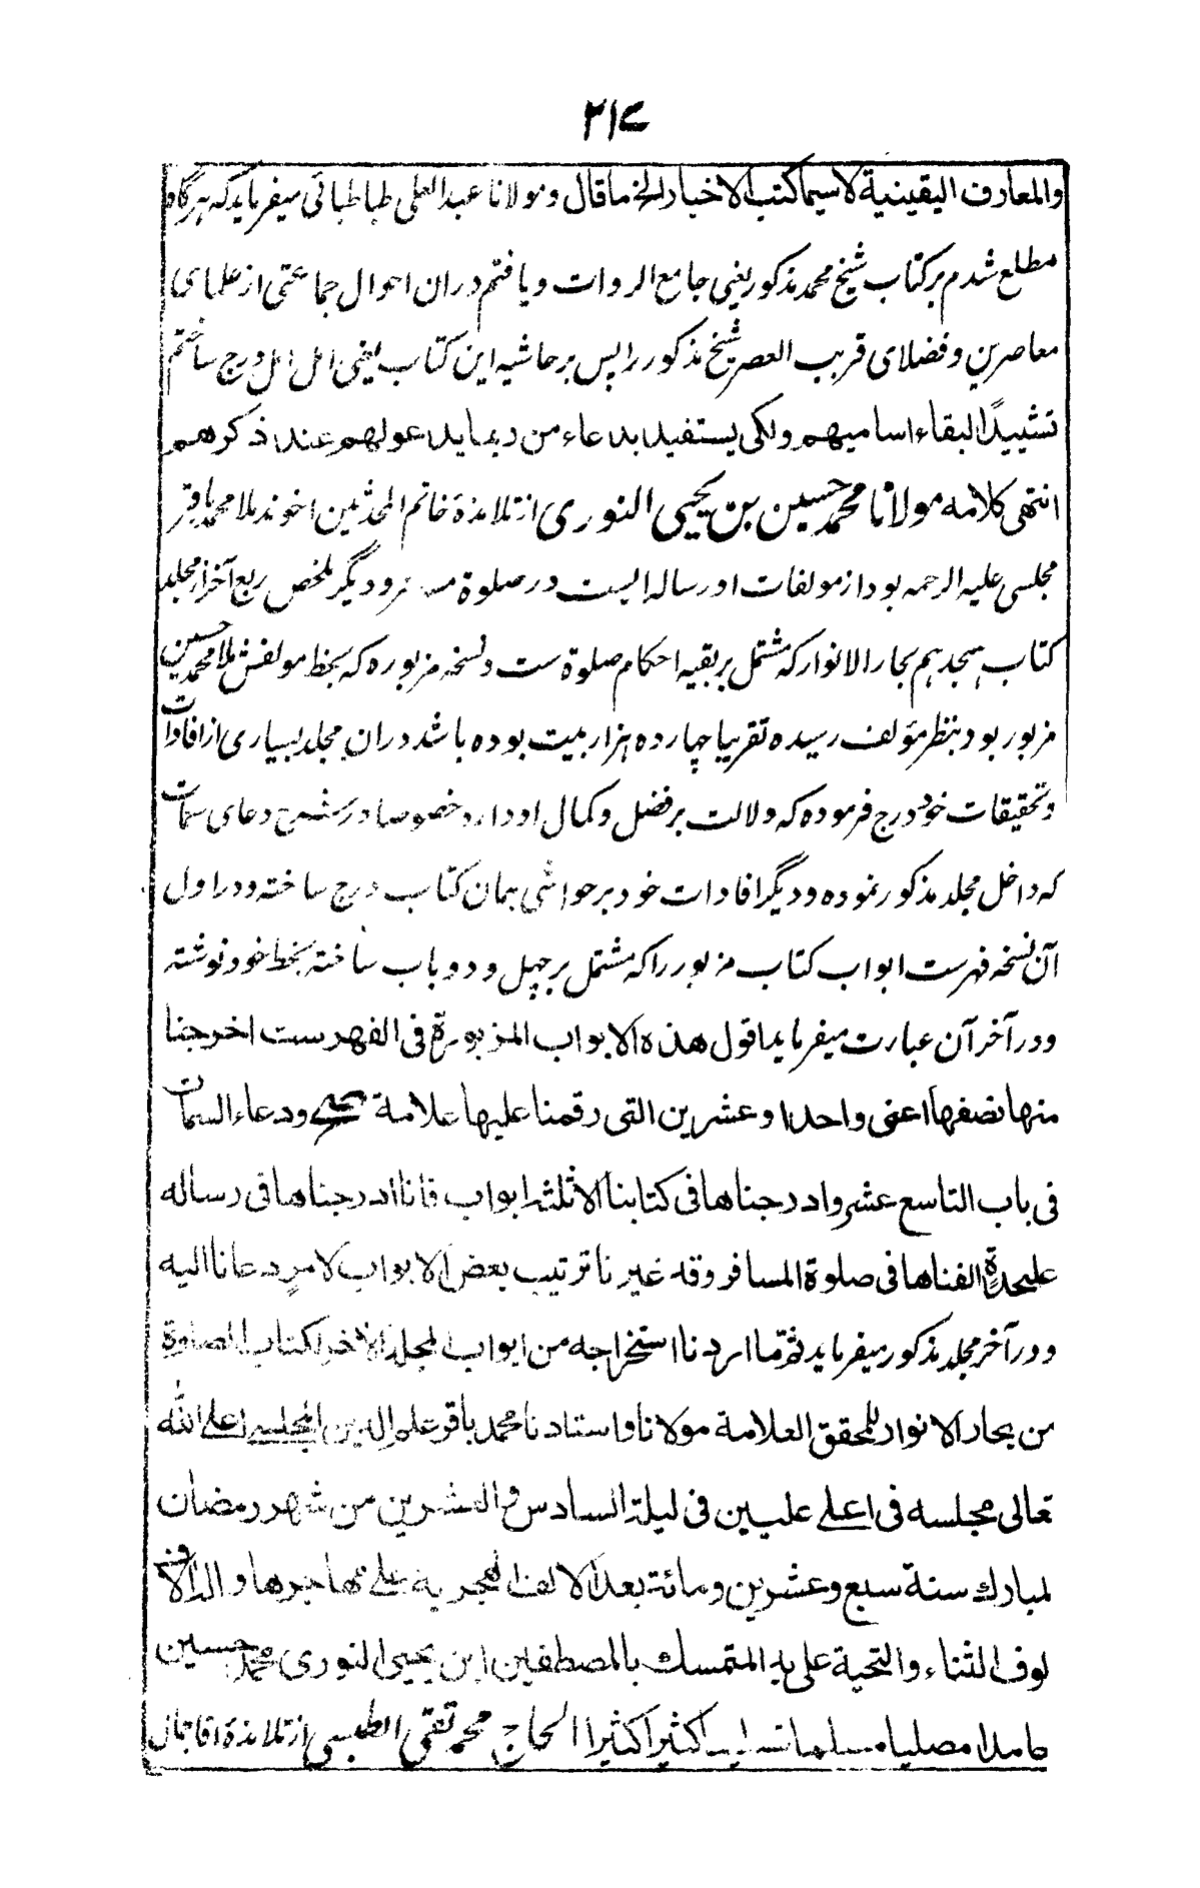 ۲۱۷
والمعارف الیقینیة لاسیما کتب الاخبار الخ ما قال و مولانا عبدالعلی طباطبائی میفرماید که هرگاه
مطلع شدم بر کتاب شیخ محمد مذکور یعنی جامع الروات و یافتم دران احوال جماعتی از علمای
معاصرین و فضلای قریب العصر شیخ مذکور را پس بر حاشیه این کتاب یعنی امل امل درج ساختم
تشییدًا لبقاء اسامیهم ولکی یستفید بدعاء من ربما یدعولهم عند ذکرهم
انتهی کلامه مولانا محمد حسین بن یحیی النوری از تلامذهٔ خاتم المحدثین اخوند ملا محمد باقر
مجلسی علیه الرحمه بود از مولفات او رساله ایست در صلوة مسافر و دیگر ملخص ربع آخر از مجلد
کتاب هیجدهم بحار الانوار که مشتمل بر بقیه احکام صلوة ست و نسخه مزبوره که بخط مولفش ملا محمد حسین
مزبور بود بنظر مؤلف رسیده تقریبا چهارده هزار بیت بوده باشد دران مجلد بسیاری از افادات
و تحقیقات خود درج فرموده که دلالت بر فضل و کمال او دارد خصوصا در شرح دعای سمات
که داخل مجلد مذکور نموده و دیگر افادات خود بر حواشی همان کتاب درج ساخته و در اول
آن نسخه فهرست ابواب کتاب مزبور را که مشتمل بر چهل و دو باب ساخته بخط خود نوشته
و در آخر آن عبارت میفرماید اقول هذه الابواب المزبورة فی الفهرست اخرجنا
منها نصفها اعنی واحدا و عشرین التی رقمنا علیها علامة صح و دعاء السمات
فی باب التاسع عشر وادرجناها فی کتابنا الا ثلثة ابواب فانا ادرجناها فی رساله
علیحدة الفناها فی صلوة المسافر وقد غیرنا ترتیب بعض الابواب لامرٍ دعانا الیه
و در آخر مجلد مذکور میفرماید ثم ما اردنا استخراجه من ابواب المجلد الاخر لکتاب الصلوة
من بحار الانوار للمحقق العلامة مولانا واستادنا محمد باقر علم الدین المجلسے اعلے الله
تعالی مجلسه فی اعلے علیین فی لیلة السادس والعشرین من شهر رمضان
لمبارك سنة سبع وعشرین ومائة بعد الالف الهجریة علی مهاجرها وآله الاف
لوف الثناء والتحیة علی ید المتمسك بالمصطفین ابن یحیی النوری محمد حسین
حامدا مصلیا مسلما تسلیما کثیرا کثیرا الحاج محمد تقی الطبسی از تلامذهٔ اقا جمال